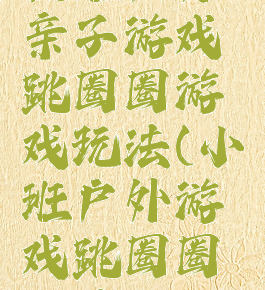 亲子游戏
跳圈圈游
戏玩法(小
班户外游
戏跳圈圈